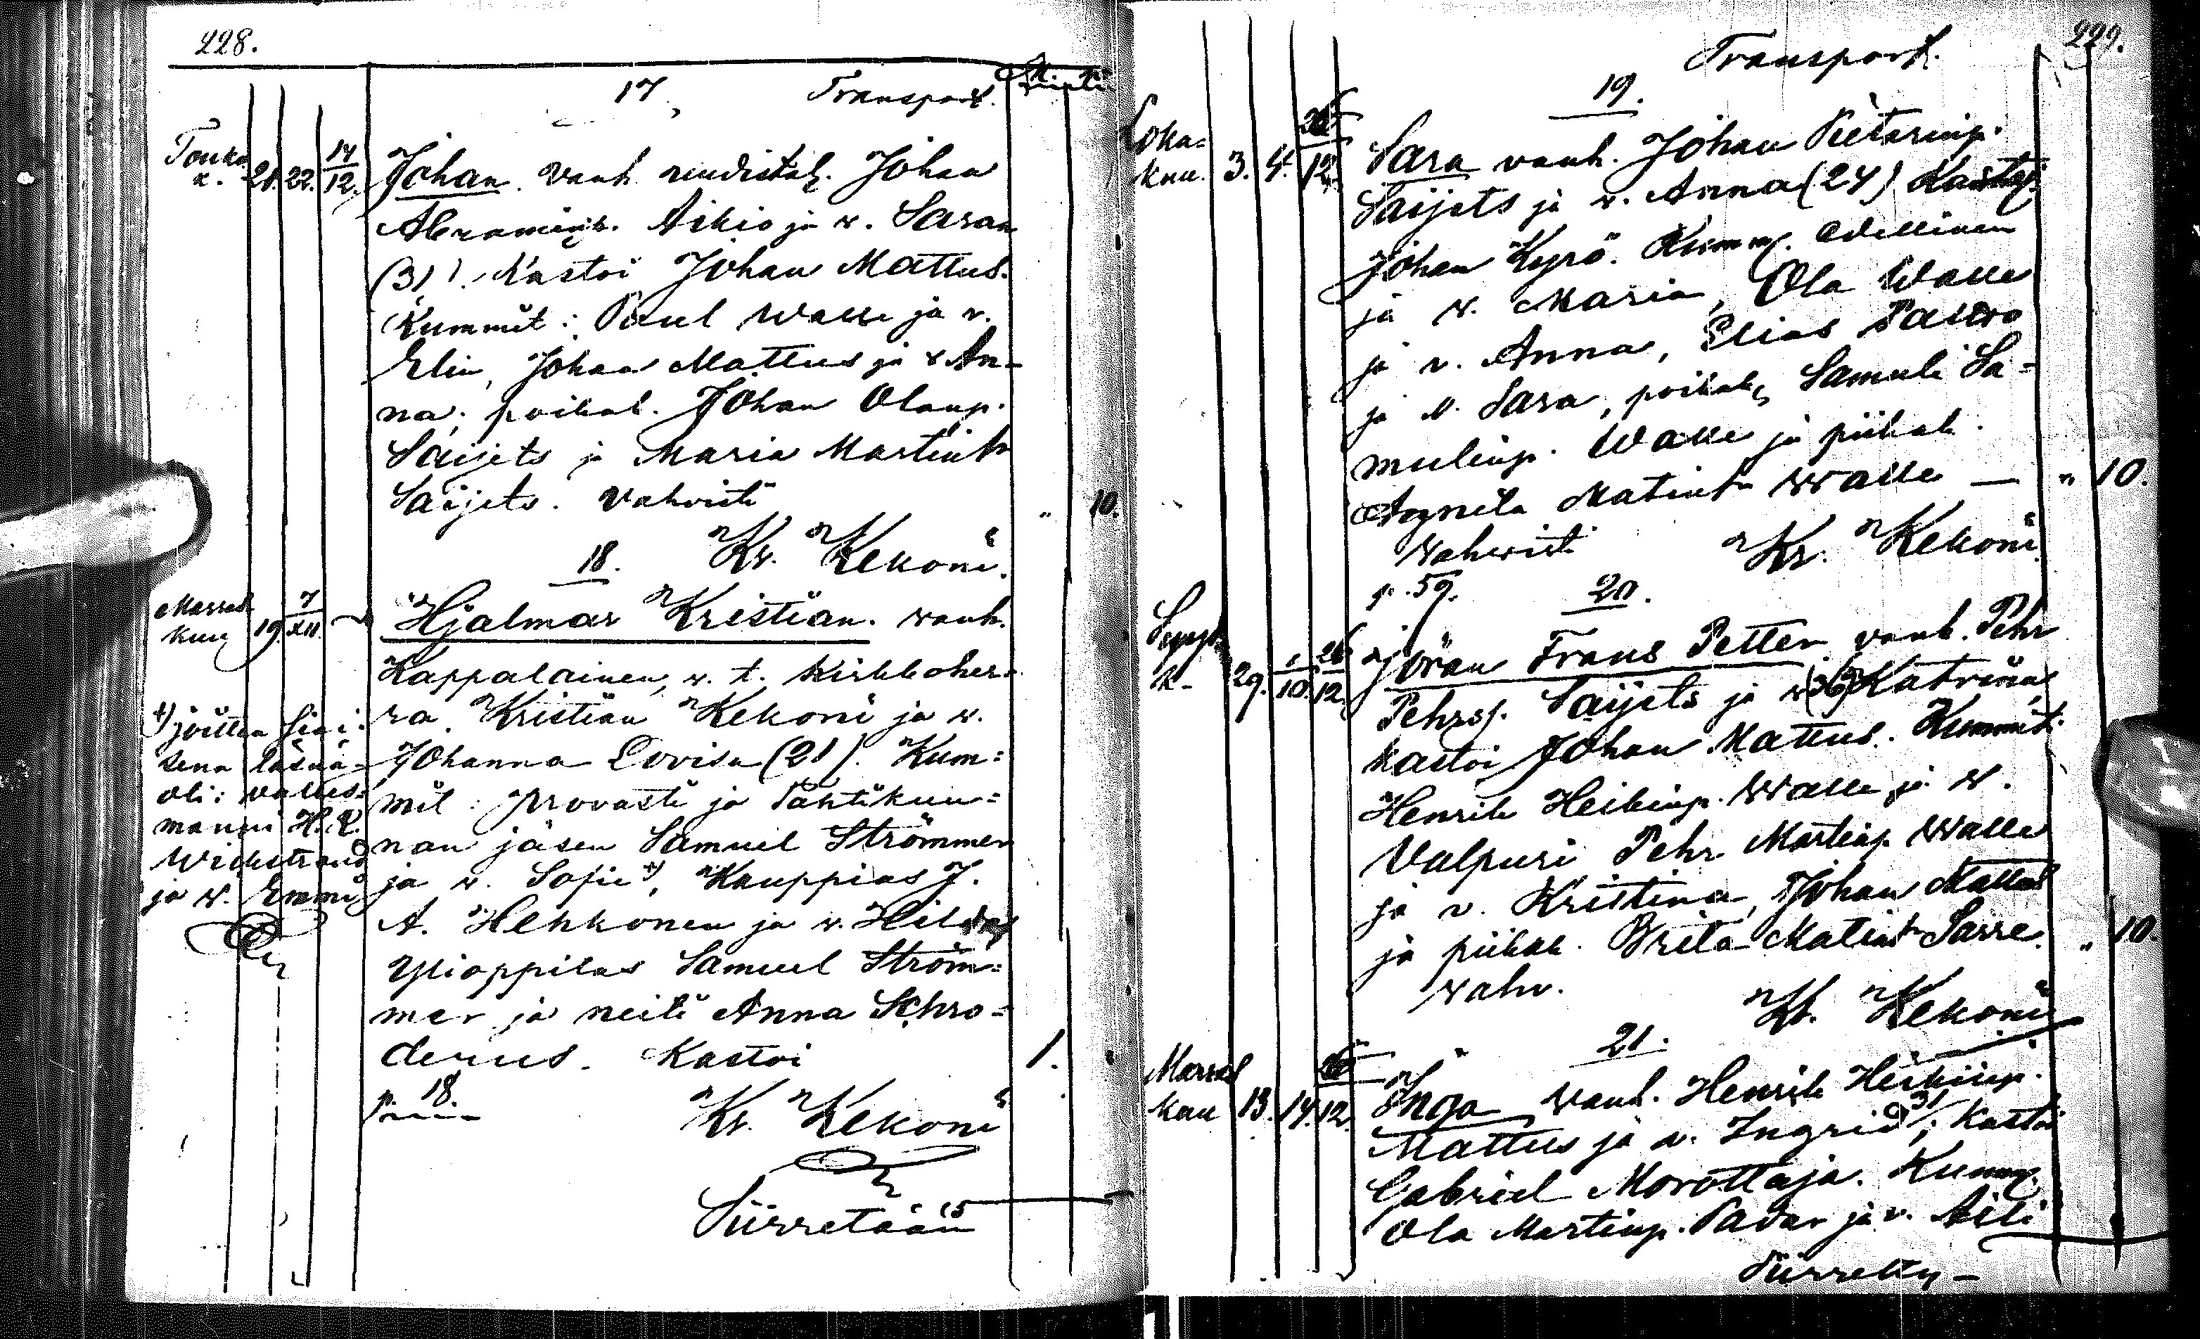 228.
17
Transport.
Touko
k. 21. 22. 14/12.
Johan. vanh. uudistal. Johan
Abraminp. Aikio ja v. Saran
(31). Kastoi Johan Mattus.
Kummit: Paul Walle ja v.
Elin, Johan Mattus ja v An-
na; poikal. Johan Olanp.
Saijets ja Maria Martint
Saijets. Vahvisti
" 10.
18. Kr. Kekoni.
Marras
kuu 19. 7/XII.
Hjalmar Kristian. vanh.
Kappalainen, v. t. Kirkkoher-
ra Kristian Kekoni ja v.
Johanna Lovisa (21). Kum=
mit: Provasti ja Säätikun=
nan jäsen Samuel Strömmer
ja v. Sofie +), Kauppias J.
A. Hehkonen ja v. Hilda,
Ylioppilas Samuel Ström=
mer ja neiti Anna Schro=
derus. Kastoi
1.
p. 18. Kr. Kekoni
+) joitten siai-
sena läsnä-
oli: vallès-
manni H. R.
Wickstrand
ja v. Emmi
Siirretään
229.
Transport.
19.
Loka=
kuu. 3. 4. 26/12.
Sara vanh. Johan Pietarinp.
Saijets ja v. Anna (24) Kastoi
Johan Kyrö. Kumm. edellinen
ja v. Maria, Ola Walle
ja v. Anna, Elias Paltto
ja v. Sara, poikal. Samuli Sa=
mulinp. Walle ja piikal.
Agneta Matint Walle — " 10.
Vahvisti Kr. Kekoni
p. 59. 20.
Sysk
k. 29. 1/10. 26/12.
Jöran Frans Petter vanh. Pehr
Pehrsp. Saijets ja v (36) Katrina
kastoi Johan Mattus. Kummit:
Henrik Heikinp. Walle ja v.
Valpuri Pehr Martinp. Walle
ja v. Kristina, Johan Mattus
ja piikal. Brita Matint Sarre. " 10.
vahv.
Kr. Kekoni
21.
Marras
kuu 13. 14. 26/12.
Inga vanh. Henrik Heikinp.
Mattus ja v. Ingrid 31; kastoi
Gabriel Morottaja. Kumm.
Ola Martinp. Padar ja v. Aili
Siirretty —